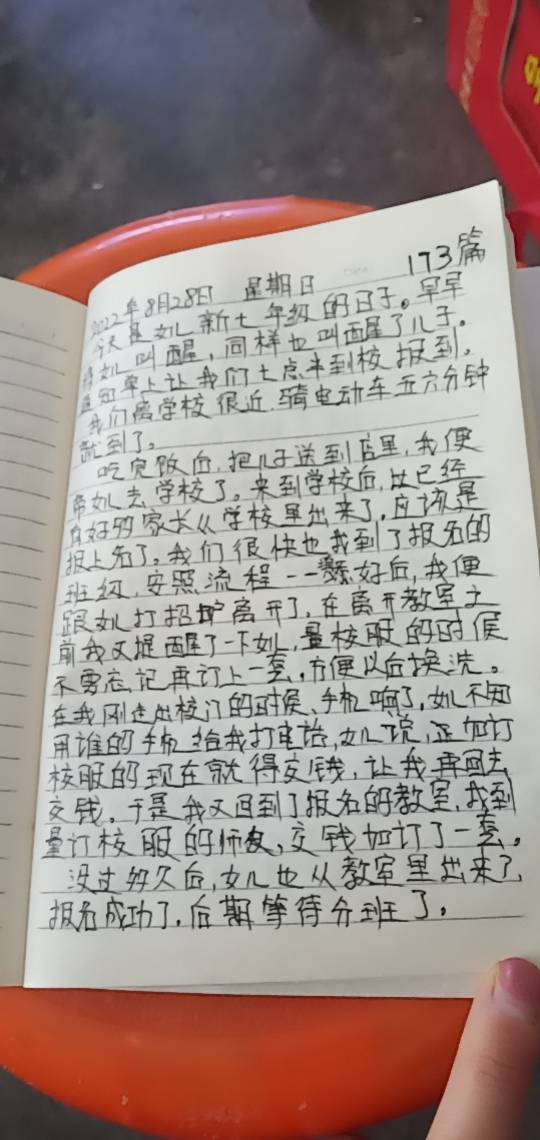 173篇
2022年8月28日 星期日
今天是女儿新七年级的日子。早早
将女儿叫醒,同样也叫醒了儿子。
通知单上让我们七点半到校报到。
我们离学校很近.骑电动车五六分钟
就到了。
吃完饭后,把儿子送到店里,我便
带女儿去学校了。来到学校后,此已经
有好多家长从学校里出来了.应该是
报上名了。我们很快也找到了报名的
班级,安照流程一一登录好后,我便
跟女儿打招呼离开了,在离开教室之
前我又提醒了一下女儿,量校服的时候
不要忘记再订上一套,方便以后换洗。
在我刚走出校门的时候、手机响了,女儿不知
用谁的手机给我打电话,女儿说,正加订
校服的现在就得交钱,让我再回去
交钱。于是我又回到了报名的教室,找到
量订校服的师友,交钱加订了一套。
没过多久后,女儿也从教室里出来了,
报名成功了.后期等待分班了。